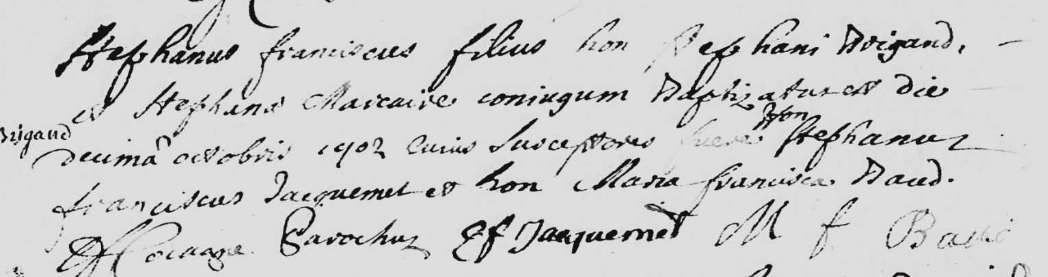 Stephanus franciscus filius hon stephani Brigand,
et Stephanæ Marcaire coniugum Baptizatus est die
Brigand
decimâ octobris 1702 Cuius Susceptores fuere hon Stephanus
franciscus Jacquemet et hon Maria francisca Baud.
Parochus Ef Jacquemet M f Baud